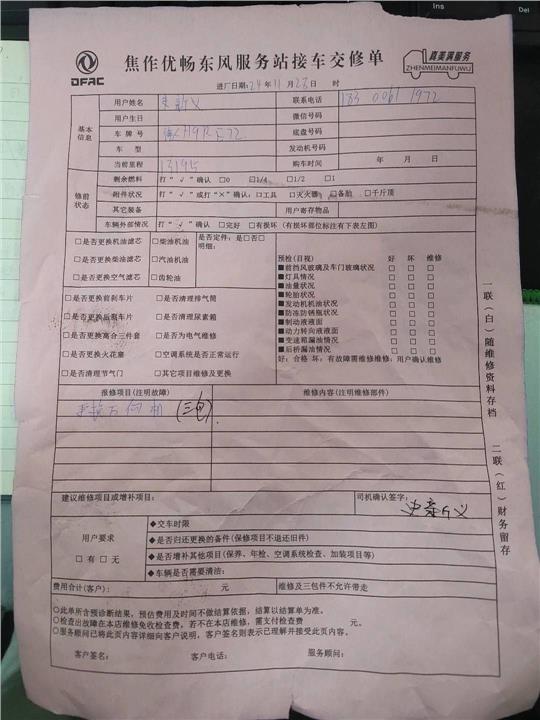 Ins
Del
DFAC
焦作优畅东风服务站接车交修单
真美满服务
ZHENMEIMANFUWU
进厂日期:24年11月28日 时
基本信息
用户姓名
联系电话
用户生日
微信号码
车牌号
底盘号码
车型
发动机号码
当前里程 13195
购车时间 年 月 日
修前状态
剩余燃料 打“√”确认 □0 □1/4 □1/2 □1
附件状况 打“√”或打“×”确认:□工具 □灭火器 □备胎 □千斤顶
其它装备 用户寄存物品
车辆外部情况 打“√”确认 □完好 □有损坏(有损坏部位标注有下表左图)
□是否更换机油滤芯 □柴油机油 是否定件:是□否□
明细:
□是否更换柴油滤芯 □汽油机油
□是否更换空气滤芯 □齿轮油
□是否更换前刹车片 □是否清理排气筒
□是否更换后刹车片 □是否清理尿素箱
□是否更换离合三件套 □是否为电气维修
□是否更换火花塞 □空调系统是否正常运行
□是否清理节气门 □其它项目维修及更换
预检(目视) 好 坏 维修
■前挡风玻璃及车门玻璃状况 □ □ □
■灯具情况 □ □ □
■油量状况 □ □ □
■轮胎状况 □ □ □
■发动机机油状况 □ □ □
■防冻防锈瓶状况 □ □ □
■制动液液面 □ □ □
■动力转向液液面 □ □ □
■变速箱漏油情况 □ □ □
■后桥漏油情况 □ □ □
好:合格 坏:有故障需维修维修:用户确认维修
报修项目(注明故障)
维修内容(注明维修部件)
更换方向机 (三包)
建议维修项目或增补项目:
司机确认签字:
用户要求
□有 □无
◆交车时限
◆是否归还更换的备件(保修项目不退还旧件)
◆是否增补其他项目(保养、年检、空调系统检查、加装项目等)
◆车辆是否需要清油:
费用合计(客户): 元
维修及三包件不允许带走
○此单所含预诊断结果,预估费用及时间不做结算依据,结算以结算单为准。
○检查出故障在本店维修免收检查费,若不在本店维修,需支付检查费 元。
○服务顾问已将此页内容详细向客户说明,客户签名则表示已理解并接受此页内容。
客户签名:
客户电话:
服务顾问:
一联(白)随维修资料存档
二联(红)财务留存